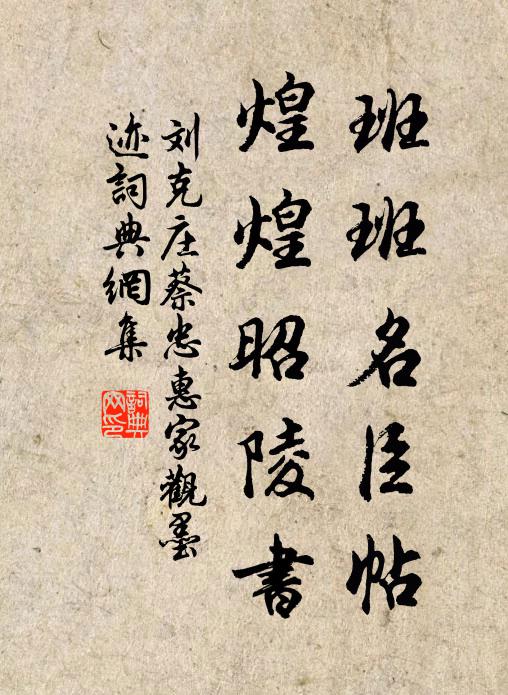 班班名臣帖
煌煌昭陵書
刘克庄蔡忠惠家觀墨
迹詞典網集
詞典网印